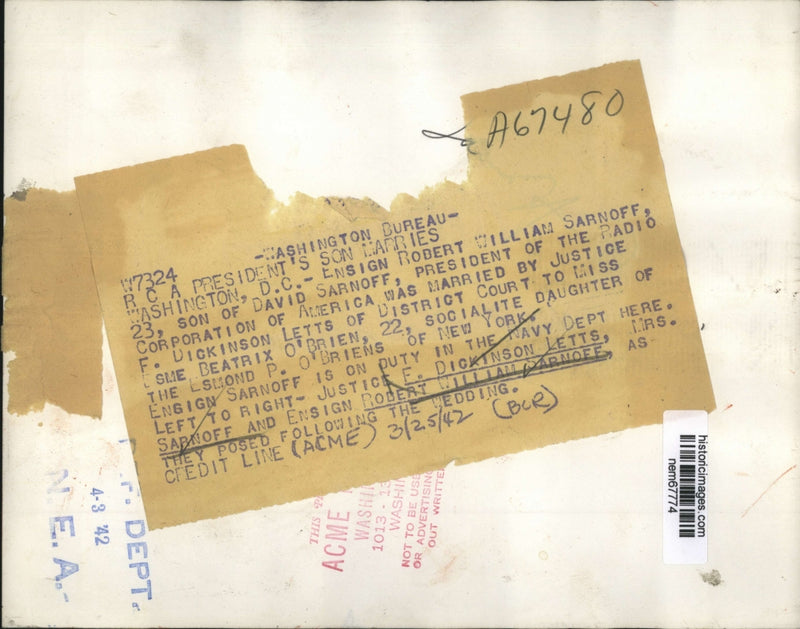 A67480
-WASHINGTON BUREAU-
W7324
R C A PRESIDENT'S SON MARRIES
WASHINGTON, D.C.- ENSIGN ROBERT WILLIAM SARNOFF,
23, SON OF DAVID SARNOFF, PRESIDENT OF THE RADIO
CORPORATION OF AMERICA WAS MARRIED BY JUSTICE
F. DICKINSON LETTS OF DISTRICT COURT TO MISS
ESME BEATRIX O'BRIEN, 22, SOCIALITE DAUGHTER OF
THE ESMOND P. O'BRIENS OF NEW YORK.
ENSIGN SARNOFF IS ON DUTY IN THE NAVY DEPT HERE.
LEFT TO RIGHT- JUSTICE F. DICKINSON LETTS, MRS.
SARNOFF AND ENSIGN ROBERT WILLIAM SARNOFF, AS
THEY POSED FOLLOWING THE WEDDING.
CREDIT LINE (ACME) 3/25/42 (BCR)
historicimages.com
nem67774
T. DEPT.
4-3 '42
N.E.A.-
THIS
ACME
WASHI
1013 - 13
WASHIN
NOT TO BE USE
OR ADVERTISING
OUT WRITTE